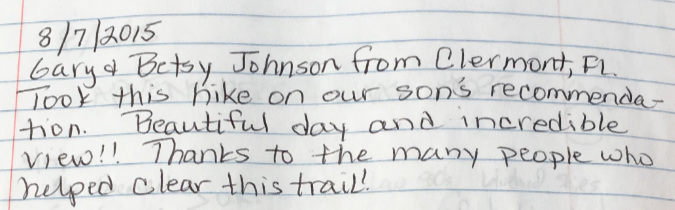 8/7/2015
Gary & Betsy Johnson from Clermont, FL.
Took this hike on our son's recommenda-
tion. Beautiful day and incredible
view!! Thanks to the many people who
helped clear this trail!